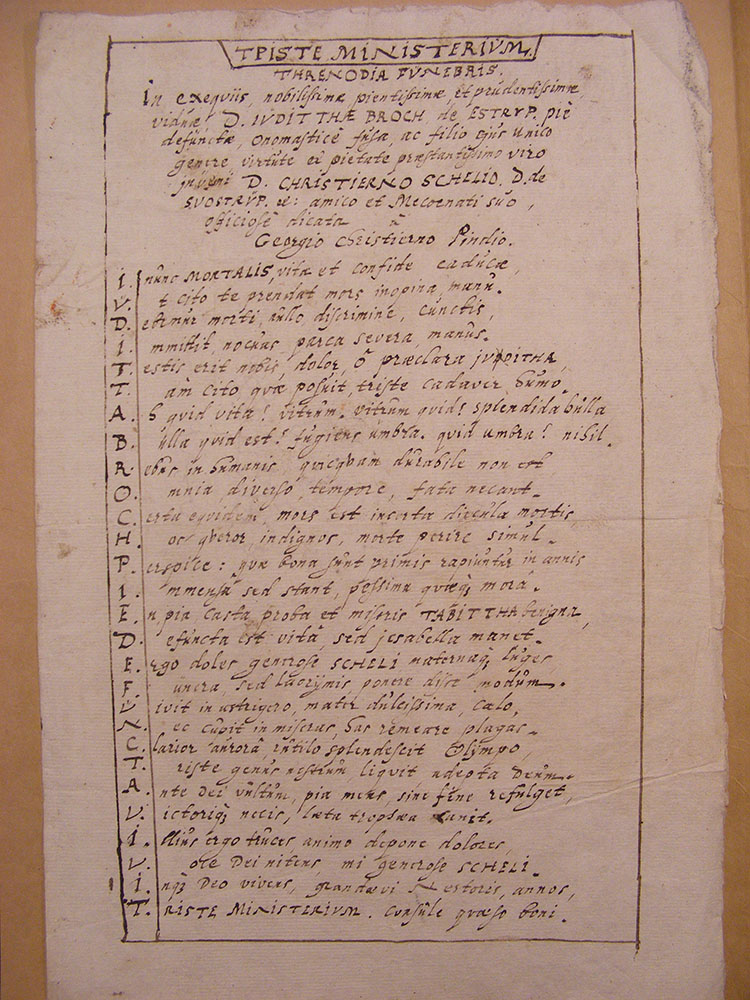 TRISTE MINISTERIVM.
THRENODIA FVNEBRIS.
In Exequiis, nobilissimæ pientissimæ, et prudentissimæ
viduæ D. IVDITTHÆ BROCH de ESTRVP. piè
defunctæ, Onomasticè fusa, ac filio ejus unico
genere virtute et pietate præstantissimo viro
juveni D. CHRISTIERNO SCHELIO. D. de
SVOSTRVP. &: amico et Mecoenati suo,
officiosè dicata à
Georgio Christierno Pindio.
I. nunc MORTALIS, vitæ et confide caducæ,
V. t cito te prendat mors inopina, manu.
D. ebemur morti, nullo discrimine, cunctis,
I. mmittit, nocuas parca severa, manus.
T. estis erit nobis, dolor, ô præclara JVDITHA,
T. am cito quæ posuit, triste cadaver humo.
A. h quid vita! vitrum. vitrum quid? splendida bulla
B. ulla quid est! fugiens umbra. quid umbra! nihil.
R. ebus in humanis, quicquam durabile non est
O. mnia, diverso, tempore, fata necant.
C. erta equidem, mors est incerta diecula mortis
H. oc queror, indignos, morte perire simul.
P. erspice: quæ bona sunt primis rapiuntur in annis
I. mmensa sed stant, pessima quæq; mora.
E. n pia casta proba et miseris TABITTHA benigna,
D. efuncta est vitâ, sed jesabella manet.
E. rgo doles generose SCHELI maternaq; luges,
F. unera, sed lacrymis ponere disce modum.
V. ivit in astrigero, mater dulcissima, Cælo,
N. ec cupit in miseras, has remeare plagas.
C. larior aurorâ, rutilo splendescit Olympo,
T. riste genus nostrum liquit adepta Deum.
A. nte Dei vultum, pia mens, sine fine refulget,
V. ictoriq; necis, læta tropæa canit.
I. llius ergo truces animo depone dolores,
V. ote Dei nitens, mi generose SCHELI.
I. nq; Deo vivens, grandævi Nestoris, annos,
T. RISTE MINISTERIVM. Consule quæso boni.